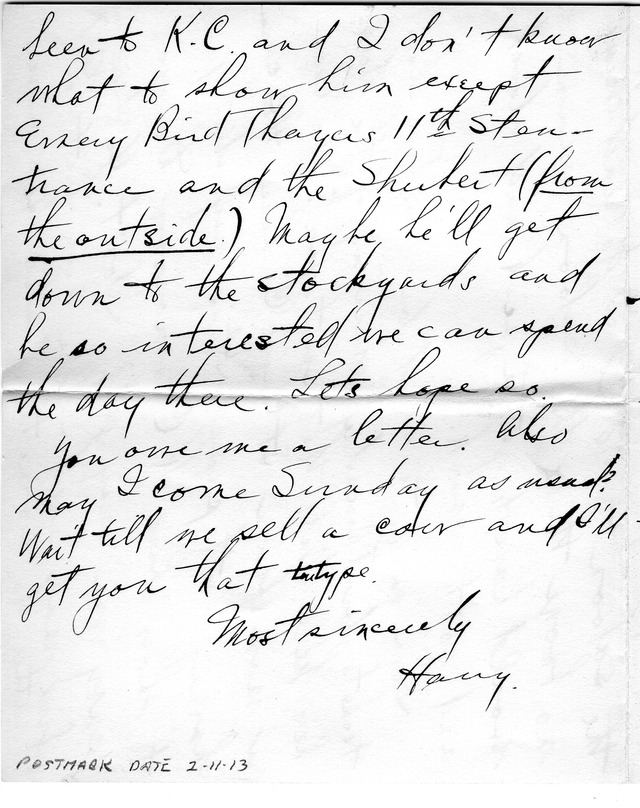 been to K.C. and I don't know
what to show him except
Emery Bird Thayers 11th St en-
trance and the Shubert (from
the outside.) Maybe he'll get
down to the stockyards and
be so interested we can spend
the day there. Lets hope so.
You owe me a letter. Also
may I come Sunday as usual?
Wait till we sell a cow and I'll
get you that tintype.
Most sincerely
Harry.
POSTMARK DATE 2-11-13